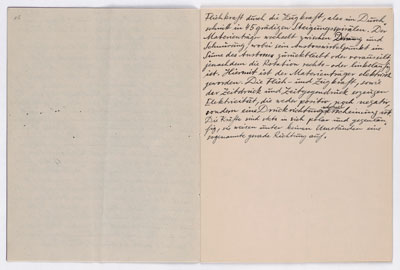 Fliehkraft durch die Zugkraft, also im Durch-
schnitt in 45 grädigen Steigungsspiralen. Der
Materienträger wechselt zwischen und
Schnürung, wobei sein Austromittelpunkt im
Sinne des Austroms zurückbleibt oder vorauseilt,
jenachdem die Rotation rechts- oder linksläufig
ist. Hiermit ist der Materienträger elektrisch
geworden. Die Flieh- und Zugkraft, sowie
der Zeitdruck und Zeitgegendruck erzeugen
Elektrizität, die weder positiv, noch negativ,
sondern eine ist.
Die Kräfte sind stets in sich polar und gegenläu-
fig, sie weisen unter keinen Umständen eine
sogenannte gerade Richtung auf.